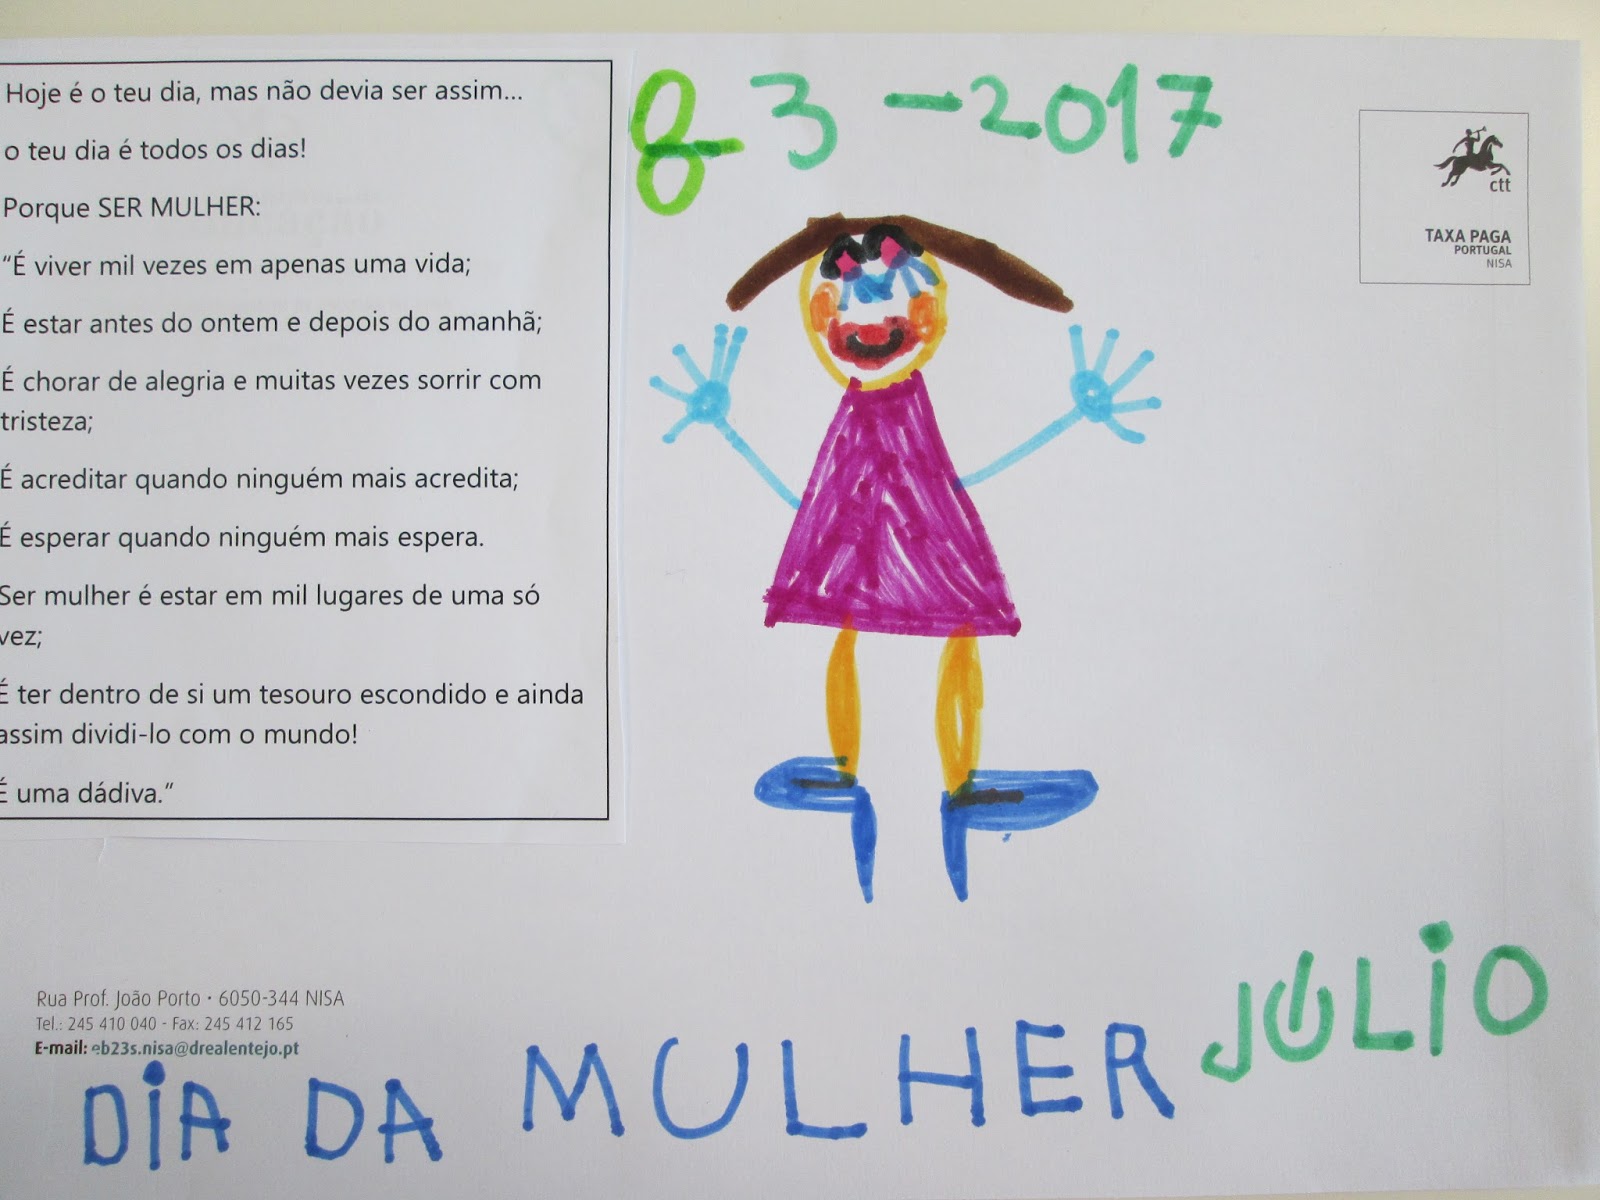 Hoje é o teu dia, mas não devia ser assim...
o teu dia é todos os dias!
Porque SER MULHER:
“É viver mil vezes em apenas uma vida;
É estar antes do ontem e depois do amanhã;
É chorar de alegria e muitas vezes sorrir com
tristeza;
É acreditar quando ninguém mais acredita;
É esperar quando ninguém mais espera.
Ser mulher é estar em mil lugares de uma só
vez;
É ter dentro de si um tesouro escondido e ainda
assim dividi-lo com o mundo!
É uma dádiva.”
8-3-2017
ctt
TAXA PAGA
PORTUGAL
NISA
Rua Prof. João Porto • 6050-344 NISA
Tel.: 245 410 040 - Fax: 245 412 165
E-mail: eb23s.nisa@drealentejo.pt
DIA DA MULHER
JÚLIO